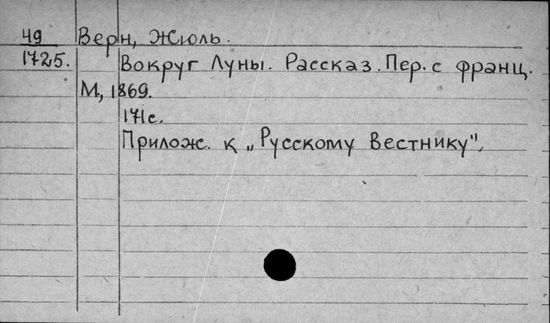 49 Верн, Жюль.
1725. Вокруг Луны. Рассказ. Пер. с франц.
М., 1869.
171 с.
Прилож. к „Русскому Вестнику".